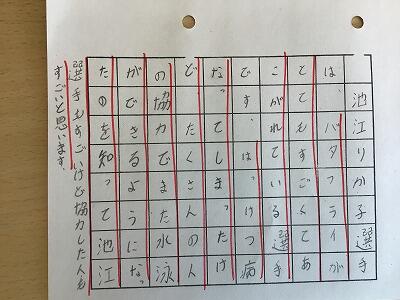 池江りか子選手
は、バタフライが
とてもすごくてあ
こがれている選手
です。はっけつ病
なって、しまったけ
ど、たくさんの人
の協力でまた水泳
ができるようになっ
たのを知って池江
選手もすごいけど協力した人も
すごいと思います。